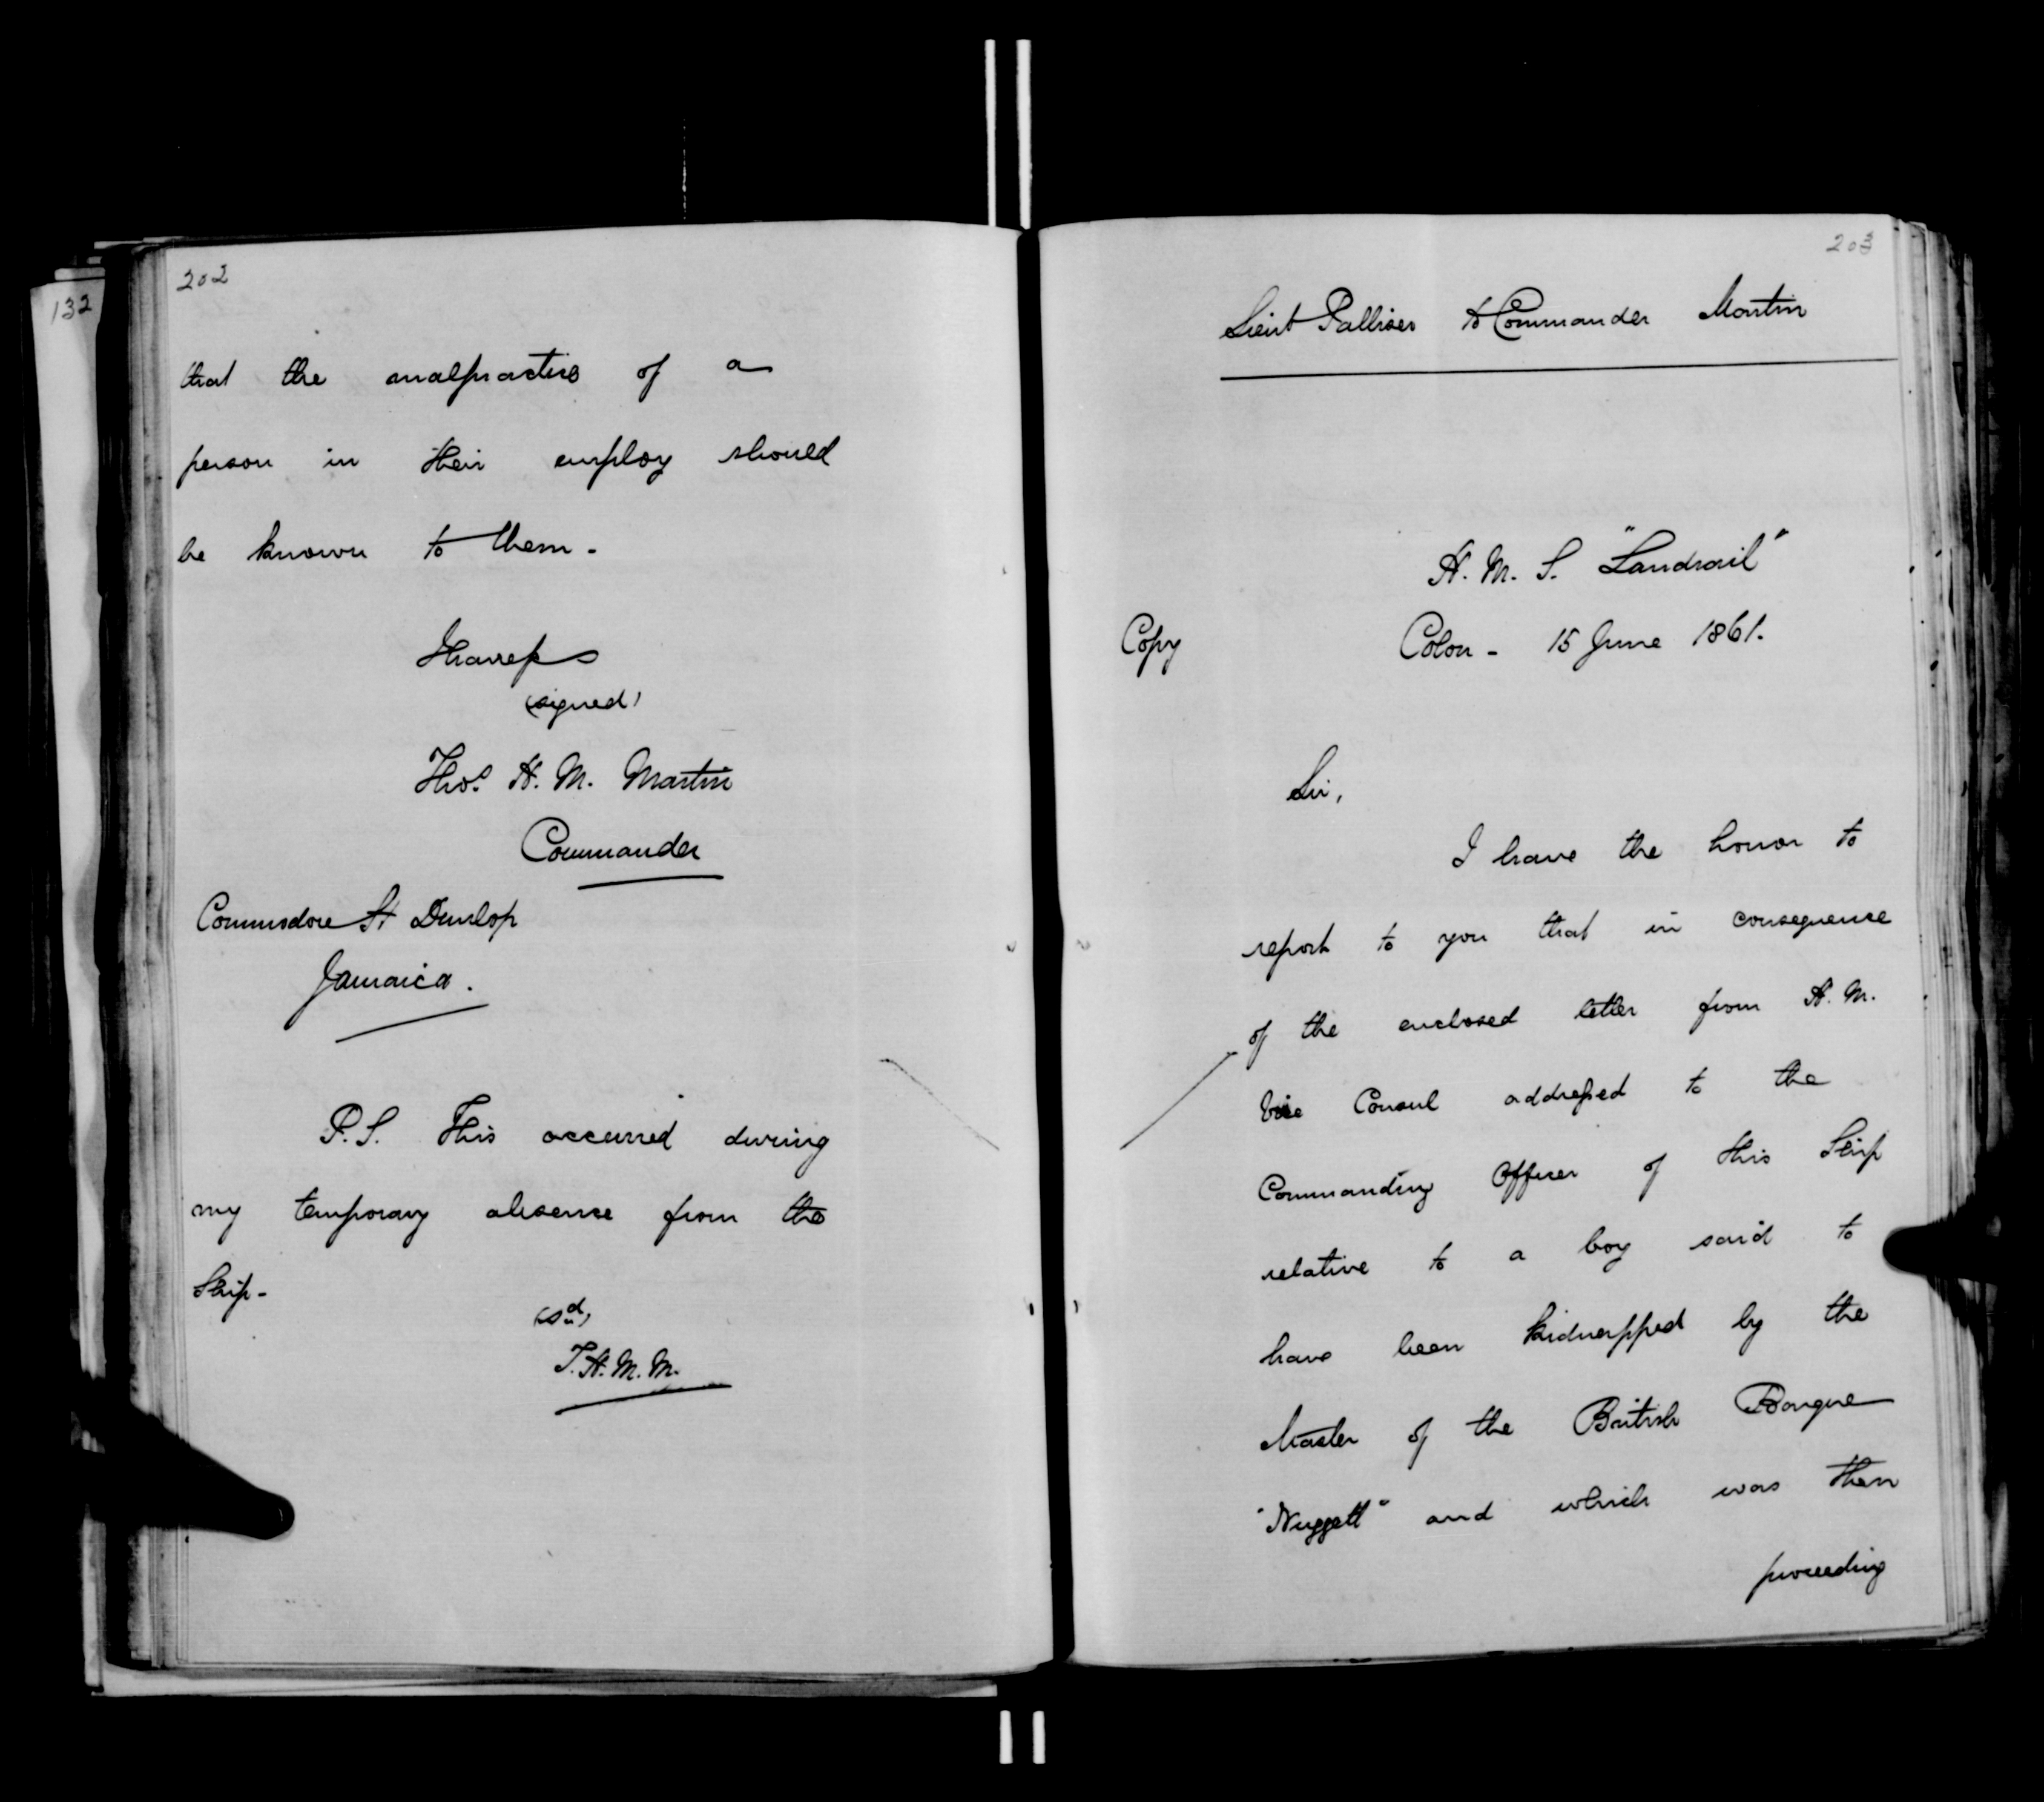 132
202
that the malpractice of a
person in their employ should
be known to them -
I have &c
(signed)
Thos. H. M. Martin
Commander
Commodore H Dunlop
Jamaica.
P.S. This occurred during
my temporary absence from the
Ship -
(sd)
T.H.M.M.
203
Lieut Palliser to Commander Martin
H. M. S. "Landrail"
Copy
Colon - 15 June 1861.
Sir,
I have the honor to
report to you that in consequence
of the enclosed letter from H. M.
Vice Consul addressed to the
Commanding Officer of this Ship
relative to a boy said to
have been kidnapped by the
Master of the British Barque
"Nuggett" and which was then
proceeding